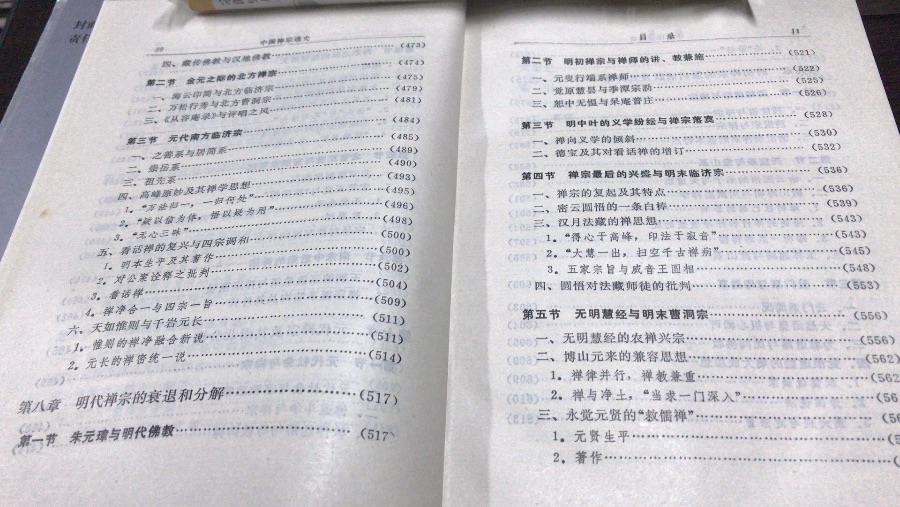 封面
责任
10 中国禅宗通史
四、藏传佛教与汉地佛教……(473)
第二节 金元之际的北方禅宗……(474)
一、海云印简与北方临济宗……(475)
二、万松行秀与北方曹洞宗……(479)
三、《从容庵录》与评唱之风……(481)
第三节 元代南方临济宗……(484)
一、之善系与居简系……(485)
二、崇岳系……(489)
三、祖先系……(490)
四、高峰原妙及其禅学思想……(493)
1. “万法归一,一归何处”……(495)
2. “疑以信为体,悟以疑为用”……(496)
3. “无心三昧”……(498)
五、看话禅的复兴与四宗调和……(500)
1. 明本生平及其著作……(500)
2. 对公案诠释之批判……(502)
3. 看话禅……(504)
4. 禅净合一与四宗一旨……(509)
六、天如惟则与千岩元长……(511)
1. 惟则的禅净融合新说……(511)
2. 元长的禅密统一说……(514)
第八章 明代禅宗的衰退和分解……(517)
第一节 朱元璋与明代佛教……(517)
目录 11
第二节 明初禅宗与禅师的讲、教兼施……(521)
一、元叟行端系禅师……(522)
二、觉原慧昙与季潭宗泐……(525)
三、恕中无愠与呆庵普庄……(526)
第三节 明中叶的义学纷纭与禅宗落寞……(528)
一、禅向义学的倾斜……(530)
二、德宝及其对看话禅的增订……(532)
第四节 禅宗最后的兴盛与明末临济宗……(536)
一、禅宗的复起及其特点……(536)
二、密云圆悟的一条白棒……(539)
三、汉月法藏的禅思想……(543)
1. “得心于高峰,印法于寂音”……(543)
2. “大慧一出,扫空千古禅病”……(545)
3. 五家宗旨与威音王圆相……(548)
四、圆悟对法藏师徒的批判……(553)
第五节 无明慧经与明末曹洞宗……(556)
一、无明慧经的农禅兴宗……(556)
二、博山元来的兼容思想……(562)
1. 禅律并行,禅教兼重……(562
2. 禅与净土,“当求一门深入”……(56
三、永觉元贤的“救儒禅”……(5
1. 元贤生平……(5
2. 著作……(